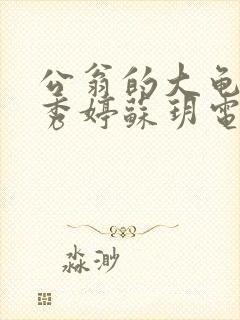 公翁的大龟
秀婷蘇玥電
淼渺